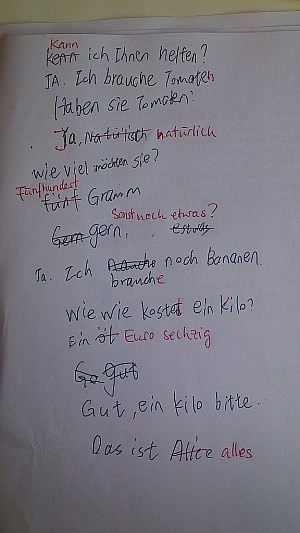 Kann
kenn ich Ihnen helfen?
JA. Ich brauche Tomaten
Haben sie Tomaten?
Ja, natürlich
wie viel möchten sie?
Fünfhundert
fünf Gramm
Sonst noch etwas?
Gern gern, , etwas
Ja. Ich noch Bananen.
brauche
wie wie kostet ein kilo?
Ein Euro sechzig
Go gut
Gut, ein kilo bitte.
Das ist alles